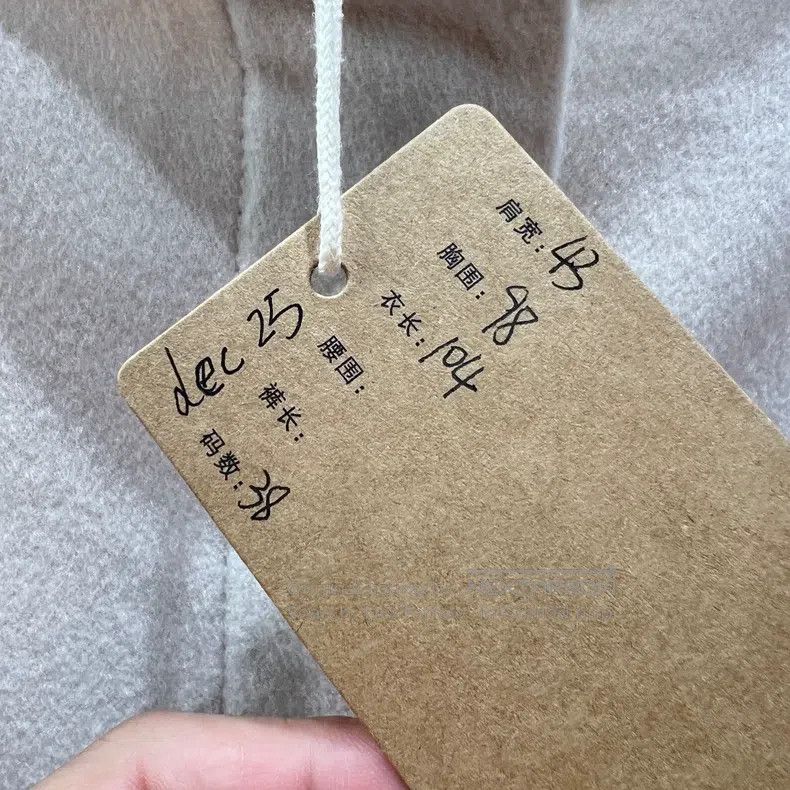 肩宽: 43
胸围: 98
衣长: 104
腰围:
裤长:
码数: 38
dec 25